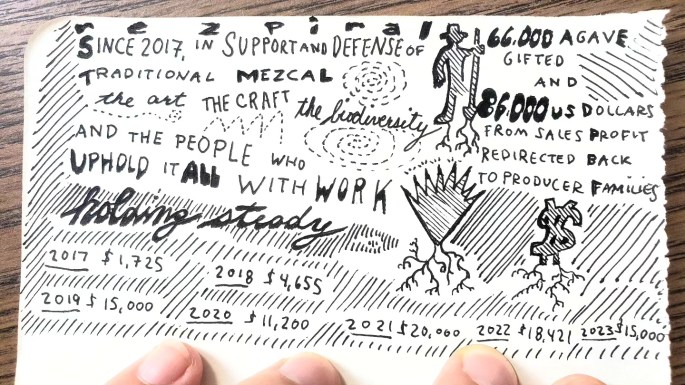 nezpiral
SINCE 2017, IN SUPPORT AND DEFENSE OF
TRADITIONAL MEZCAL
the art THE CRAFT the biodiversity
AND THE PEOPLE WHO
UPHOLD IT ALL WITH WORK
holding steady
66.000 AGAVE
GIFTED
AND
86.000 US DOLLARS
FROM SALES PROFIT
REDIRECTED BACK
TO PRODUCER FAMILIES
$
2017 $1,725
2018 $4,655
2019 $15,000
2020 $11,200
2021 $20,000
2022 $18,421
2023 $15,000